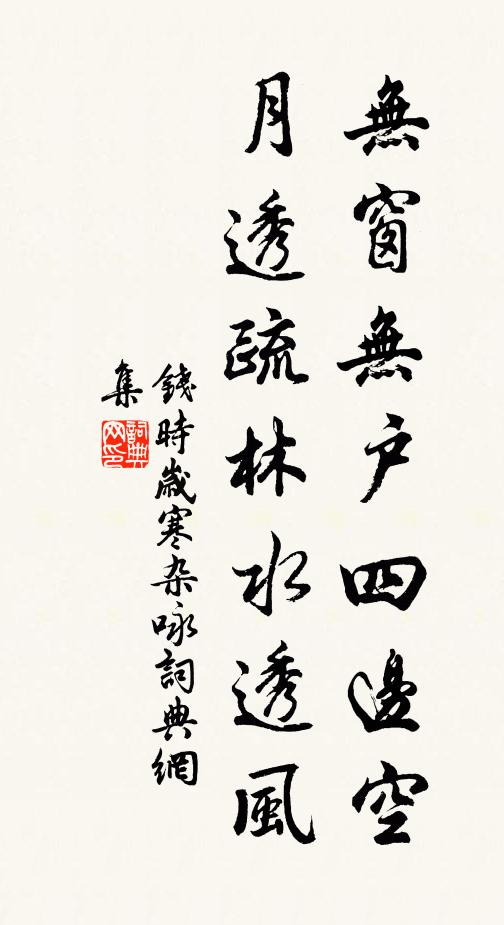 無窗無户四邊空
月透疏林水透風
錢時歲寒杂咏詞典網
集
詞典网印